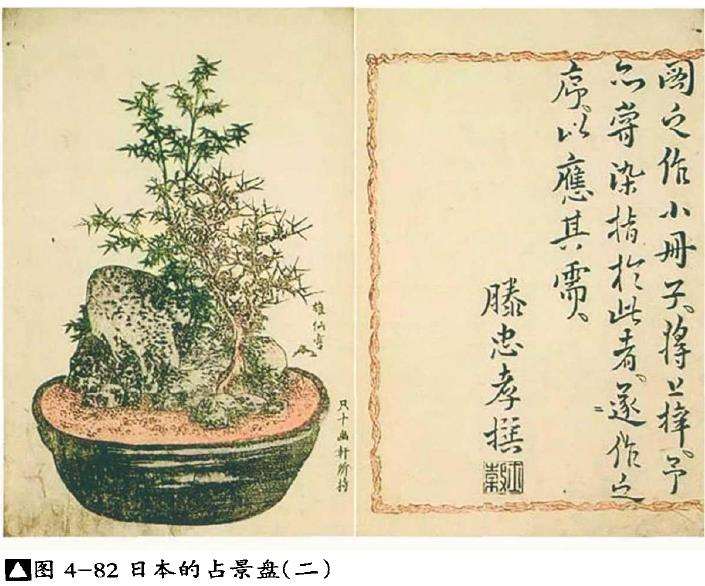 圖之作小冊子、将上梓、予
亦嘗染指於此者、遂作之
序、以應其需、
滕忠孝撰
軒所持
图 4-82 日本的占景盘(二)